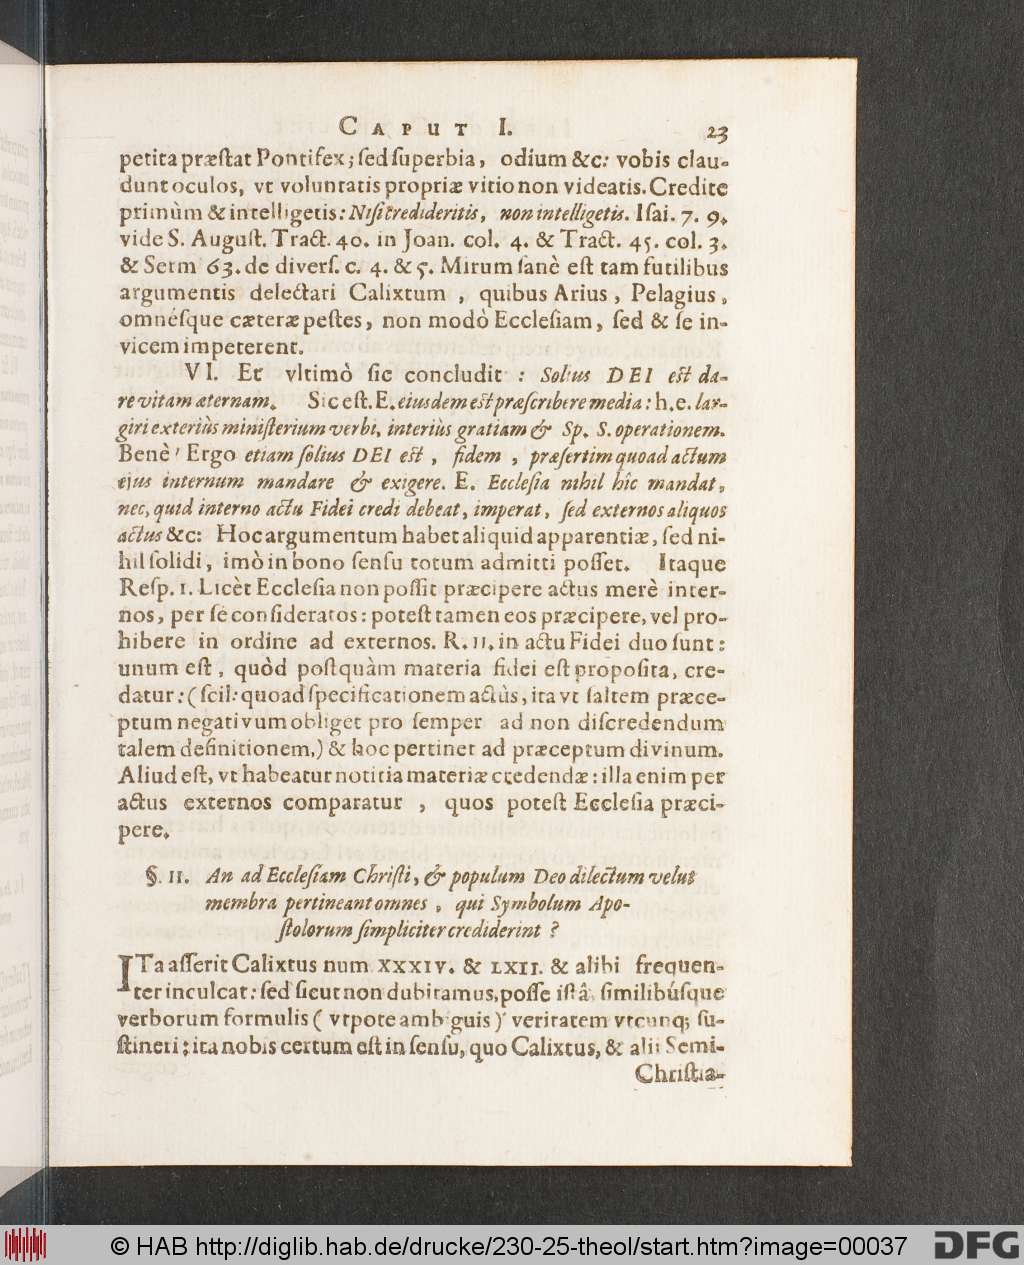 CAPUT I. 23
petita præſtat Pontifex; ſed ſuperbia, odium &c: vobis clau-
dunt oculos, vt voluntatis propriæ vitio non videatis. Credite
primùm & intelligetis: Niſi credideritis, non intelligetis. Iſai. 7. 9.
vide S. Auguſt. Tract. 40. in Joan. col. 4. & Tract. 45. col. 3.
& Serm 63. de diverſ. c. 4. & 5. Mirum ſanè eſt tam futilibus
argumentis delectari Calixtum, quibus Arius, Pelagius,
omnéſque cæteræ peſtes, non modò Eccleſiam, ſed & ſe in-
vicem impeterent.
VI. Et vltimò ſic concludit: Solius DEI eſt da-
re vitam æternam. Sic eſt. E. eiusdem eſt præſcribere media: h.e. lar-
giri exteriùs miniſterium verbi, interiùs gratiam & Sp. S. operationem.
Benè! Ergo etiam ſolius DEI eſt, fidem, præſertim quoad actum
ejus internum mandare & exigere. E. Eccleſia nihil hîc mandat,
nec, quid interno actu Fidei credi debeat, imperat, ſed externos aliquos
actus &c: Hoc argumentum habet aliquid apparentiæ, ſed ni-
hil ſolidi, imò in bono ſenſu totum admitti poſſet. Itaque
Reſp. 1. Licèt Eccleſia non poſſit præcipere actus merè inter-
nos, per ſe conſideratos: poteſt tamen eos præcipere, vel pro-
hibere in ordine ad externos. R. II. in actu Fidei duo ſunt:
unum eſt, quòd poſtquàm materia fidei eſt propoſita, cre-
datur: (ſcil: quoad ſpecificationem actûs, ita vt ſaltem præce-
ptum negativum obliget pro ſemper ad non diſcredendum
talem definitionem,) & hoc pertinet ad præceptum divinum.
Aliud eſt, vt habeatur notitia materiæ credendæ: illa enim per
actus externos comparatur, quos poteſt Eccleſia præci-
pere.
§. II. An ad Eccleſiam Chriſti, & populum Deo dilectum velut
membra pertineant omnes, qui Symbolum Apo-
ſtolorum ſimpliciter crediderint?
ITa aſſerit Calixtus num XXXIV. & LXII. & alibi frequen-
ter inculcat: ſed ſicut non dubitamus, poſſe iſtâ ſimilibúſque
verborum formulis (vtpote amb guis) veritatem vtcunq; ſu-
ſtineri; ita nobis certum eſt in ſenſu, quo Calixtus, & alii Semi-
Chriſtia-
© HAB http://diglib.hab.de/drucke/230-25-theol/start.htm?image=00037
DFG